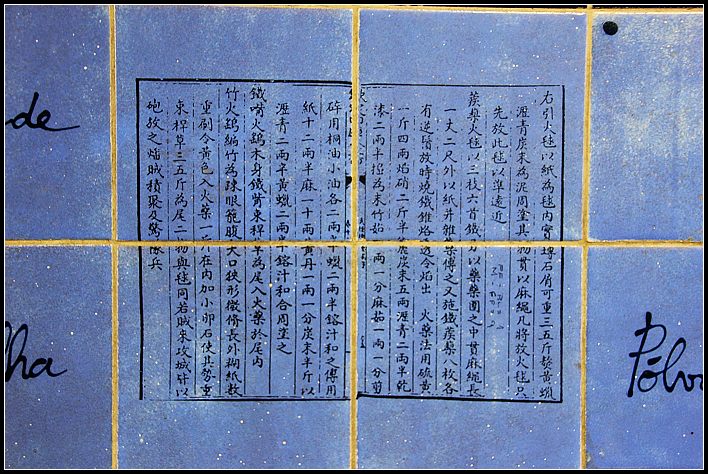 de
lha
右引火毬以紙為毬內實塼石屑可重三五斤熬黃蠟
瀝青炭末為泥周塗其物貫以麻繩凡將放火毬只
先放此毬以準遠近
蒺藜火毬以三枝六首鐵刃以藥藥團之中貫麻繩長
一丈二尺外以紙并雜藥傅之又施鐵蒺藜八枚各
有逆鬚放時燒鐵錐烙透令焰出 火藥法用硫黃
一斤四兩焰硝二斤半麄炭末五兩瀝青二兩半乾
漆二兩半搗為末竹茹一兩一分麻茹一兩一分剪
碎用桐油小油各二兩半蠟二兩半鎔汁和之傅用
紙十二兩半麻一十兩黃丹一兩一分炭末半斤以
瀝青二兩半黃蠟二兩半鎔汁和合周塗之
鐵嘴火鷂木身鐵嘴束稈草為尾入火藥於尾內
竹火鷂編竹為疎眼籠腹大口狹形微脩長外糊紙數
重刷令黃色入火藥一斤在內加小卵石使其勢重
束稈草三五斤為尾二物與毬同若賊來攻城皆以
砲放之燔賊積聚及驚隊兵
Pólvo